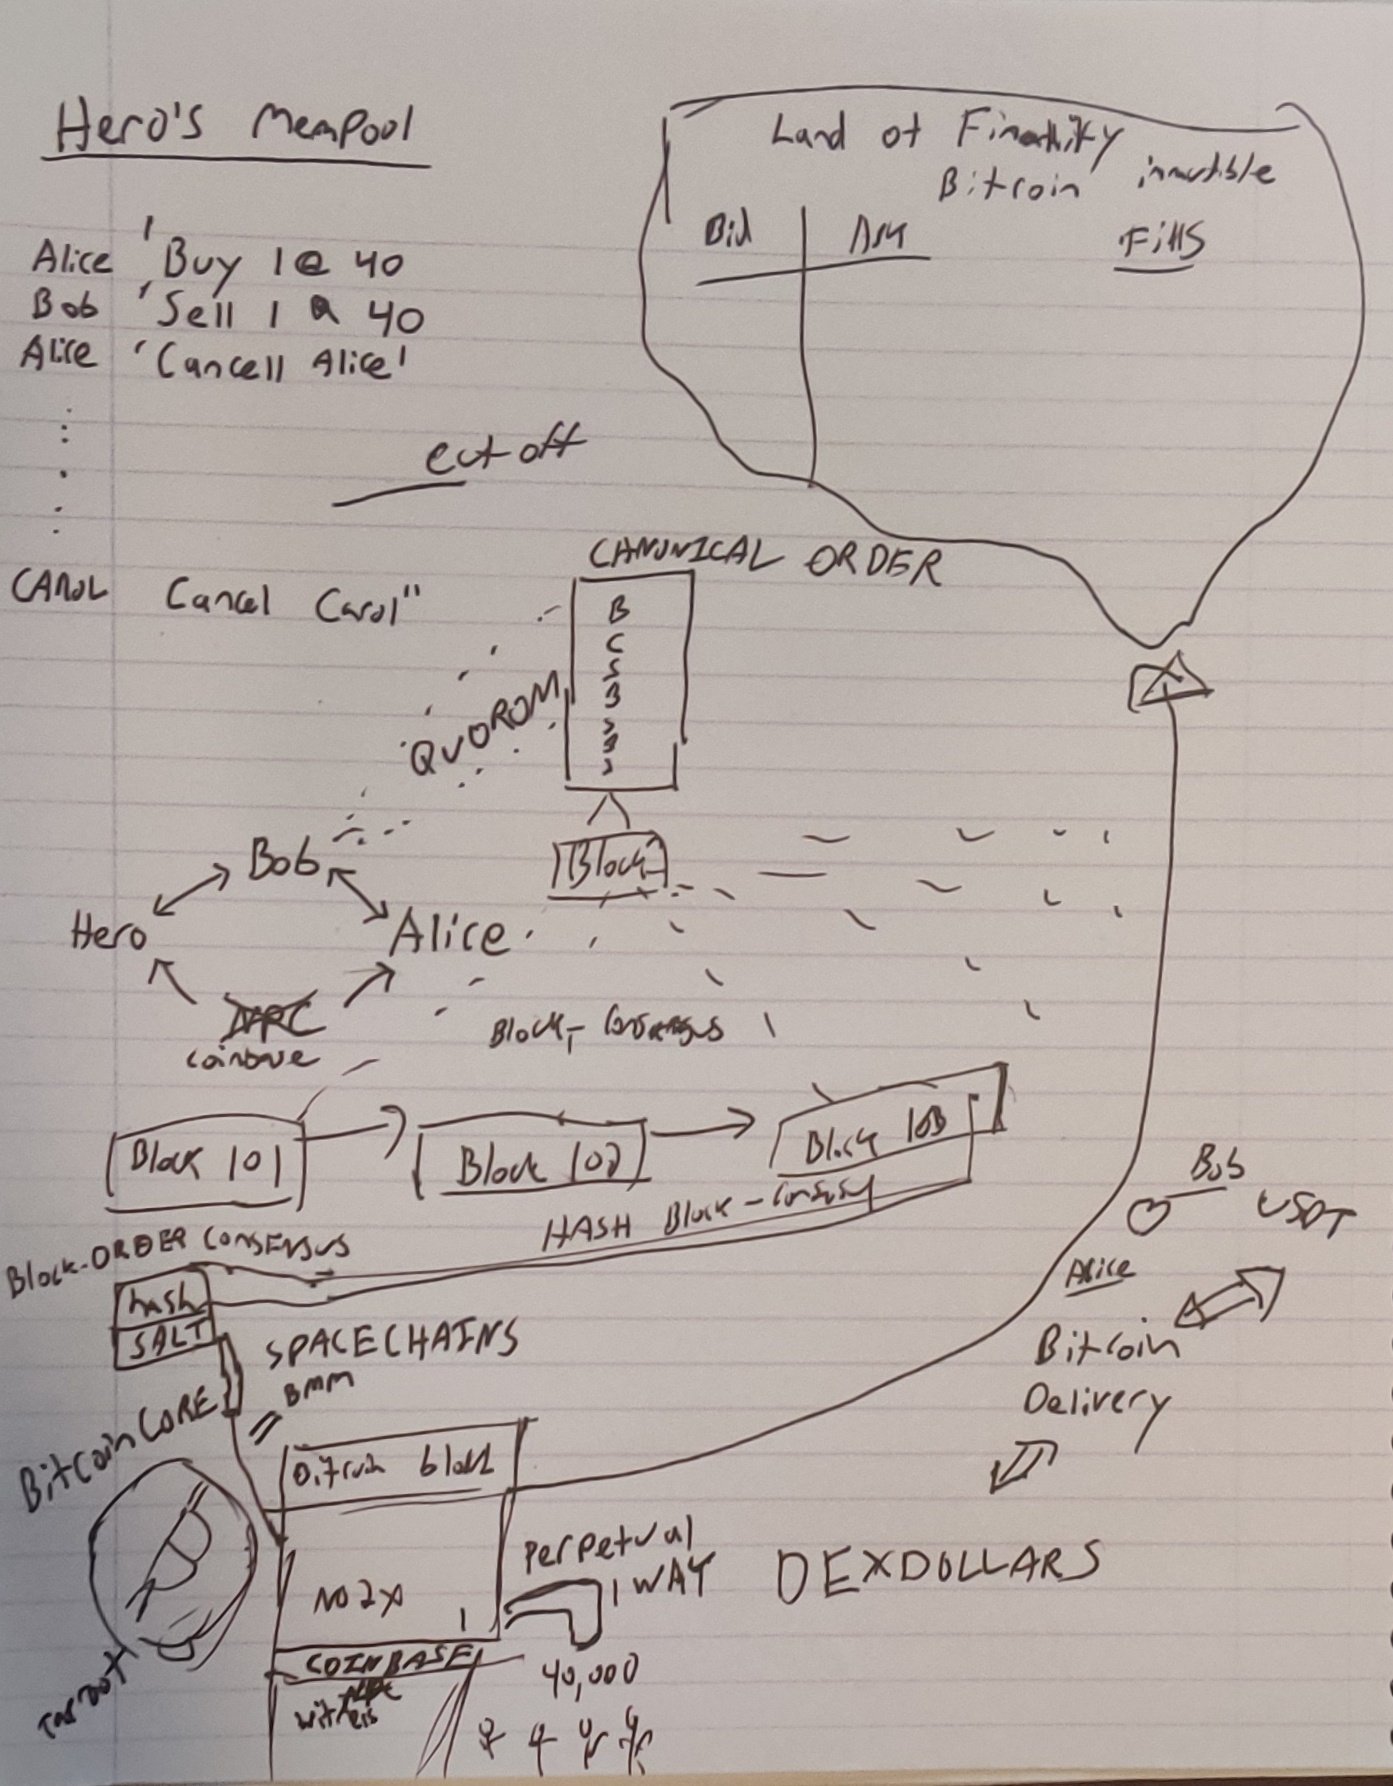 Hero's Mempool
Land of Finality
Bitcoin immutible
Bid Ask
Fills
Alice 'Buy 1 @ 40
Bob 'Sell 1 @ 40
Alice 'Cancell Alice'
cut off
CAROL Cancel Carol"
CANONICAL ORDER
B
C
S
B
S
B
S
QUOROM
Block
Bob
Hero
Alice
NPC
Block- Consensus
Block 101
Block 102
Block 103
HASH Block-
Block-ORDER CONSENSUS
hash
SALT
SPACECHAINS
BMM
Bob
USDT
Alice
Bitcoin
Delivery
Bitcoin CORE
Bitcoin block
NO 2X
1
perpetual
1 WAY
DEXDOLLARS
COINBASE
witness
40,000